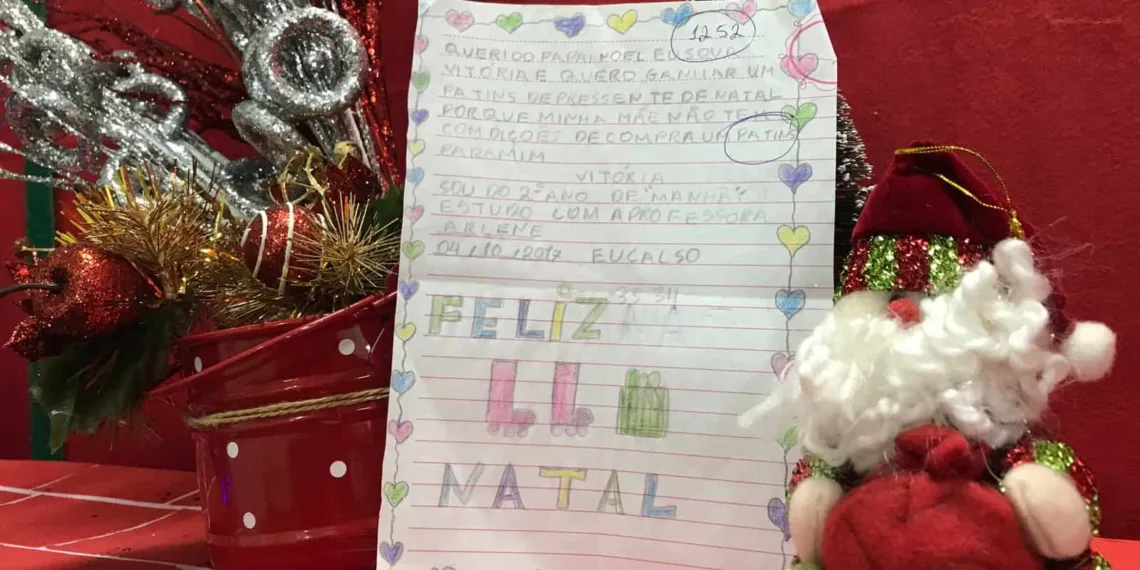 1252
QUERIDO PAPAI NOEL EU SOU A
VITÓRIA E QUERO GANHAR UM
PATINS DE PRESSENTE DE NATAL
PORQUE MINHA MÃE NÃO TEM
COMDIÇOES DE COMPRA UM PATINS
PARAMIM
VITÓRIA
SOU DO 2º ANO DE "MANHÃ"
ESTUDO COM A PROFESSORA
ARLENE
04/10/2017 EUCALSO
33 34
FELIZ
NATAL